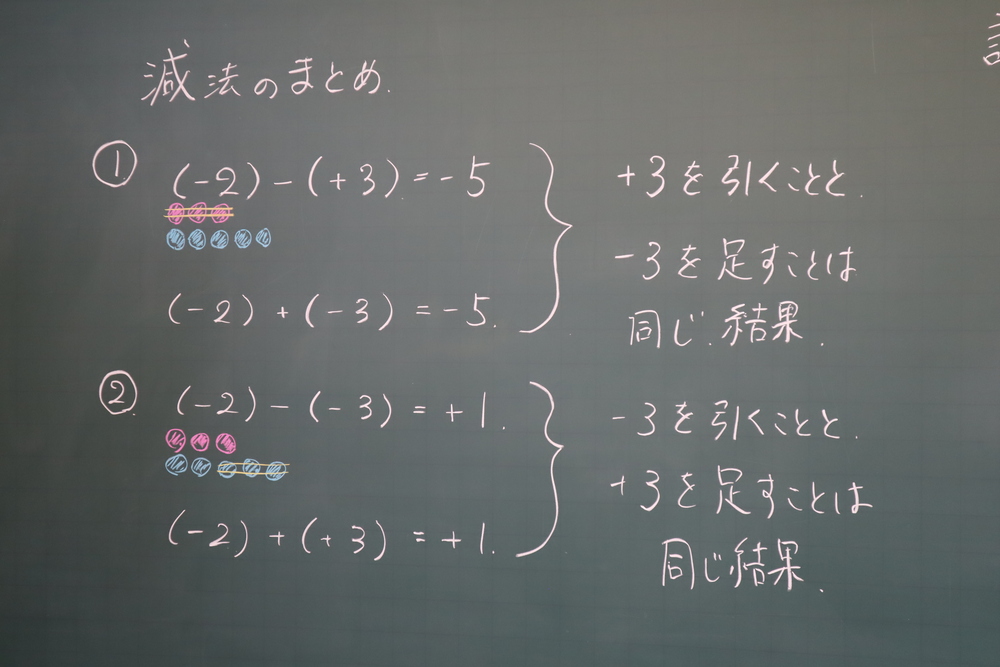 減法のまとめ.
① (-2)-(+3)=-5
(-2)+(-3)=-5.
+3を引くことと.
-3を足すことは
同じ.結果.
② (-2)-(-3)=+1.
(-2)+(+3)=+1.
-3を引くことと.
+3を足すことは
同じ結果.